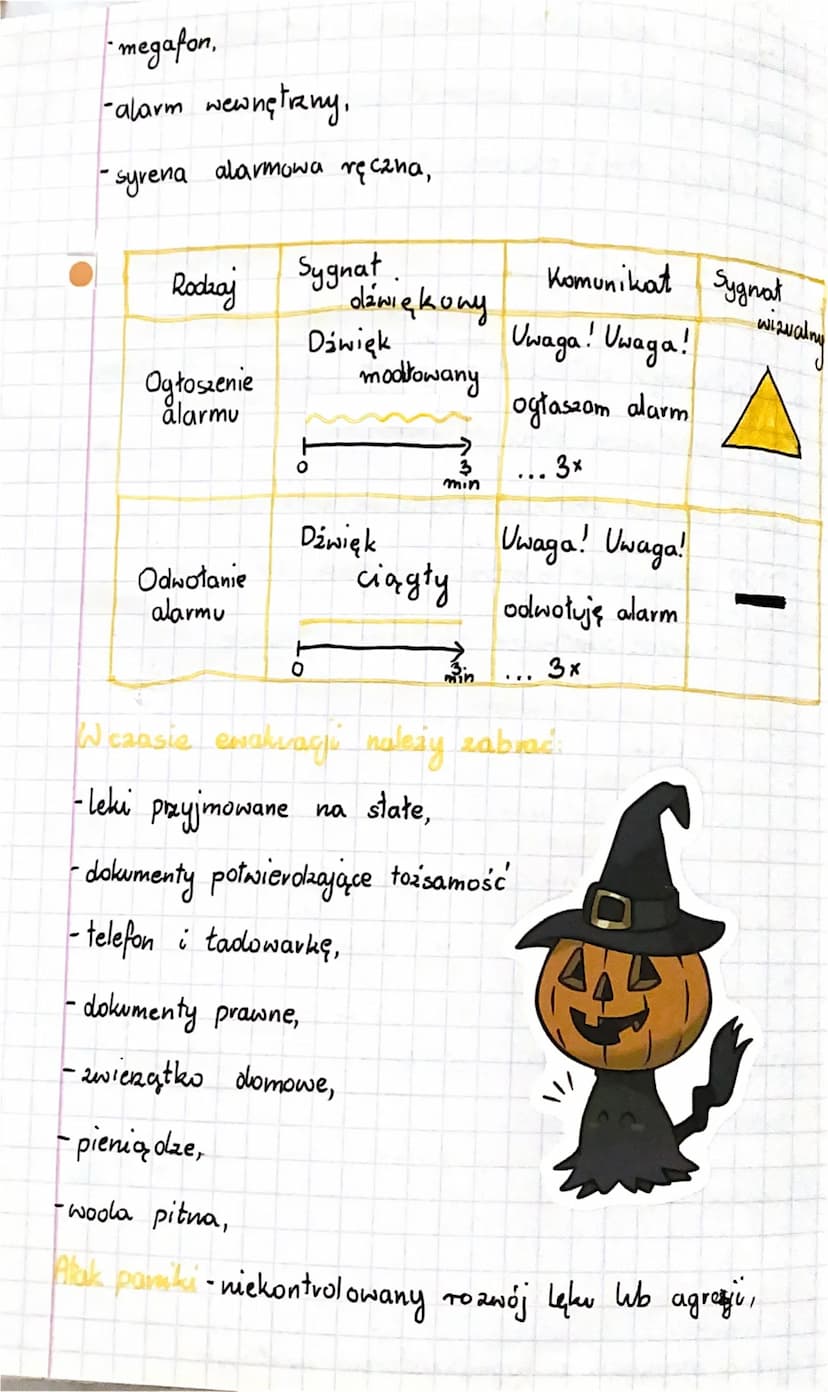 -megafon,
-alarm wewnętrzny,
-syrena alarmowa ręczna,
Rodzaj
Sygnał
dźwiękowy
Komunikat
Sygnał
wizualny
Ogłoszenie
alarmu
Dźwięk
modłowany
0
3
min
Uwaga! Uwaga!
ogłaszam alarm
... 3x
Odwołanie
alarmu
Dźwięk
ciągły
0
3
min
Uwaga! Uwaga!
odwołuję alarm
... 3x
W czasie ewakuacji należy zabrać:
-leki przyjmowane na stałe,
-dokumenty potwierdzające tożsamość
-telefon i ładowarkę,
-dokumenty prawne,
-zwierzątko domowe,
-pieniądze,
-woda pitna,
Atak paniki -niekontrolowany rozwój lęku lub agresji,